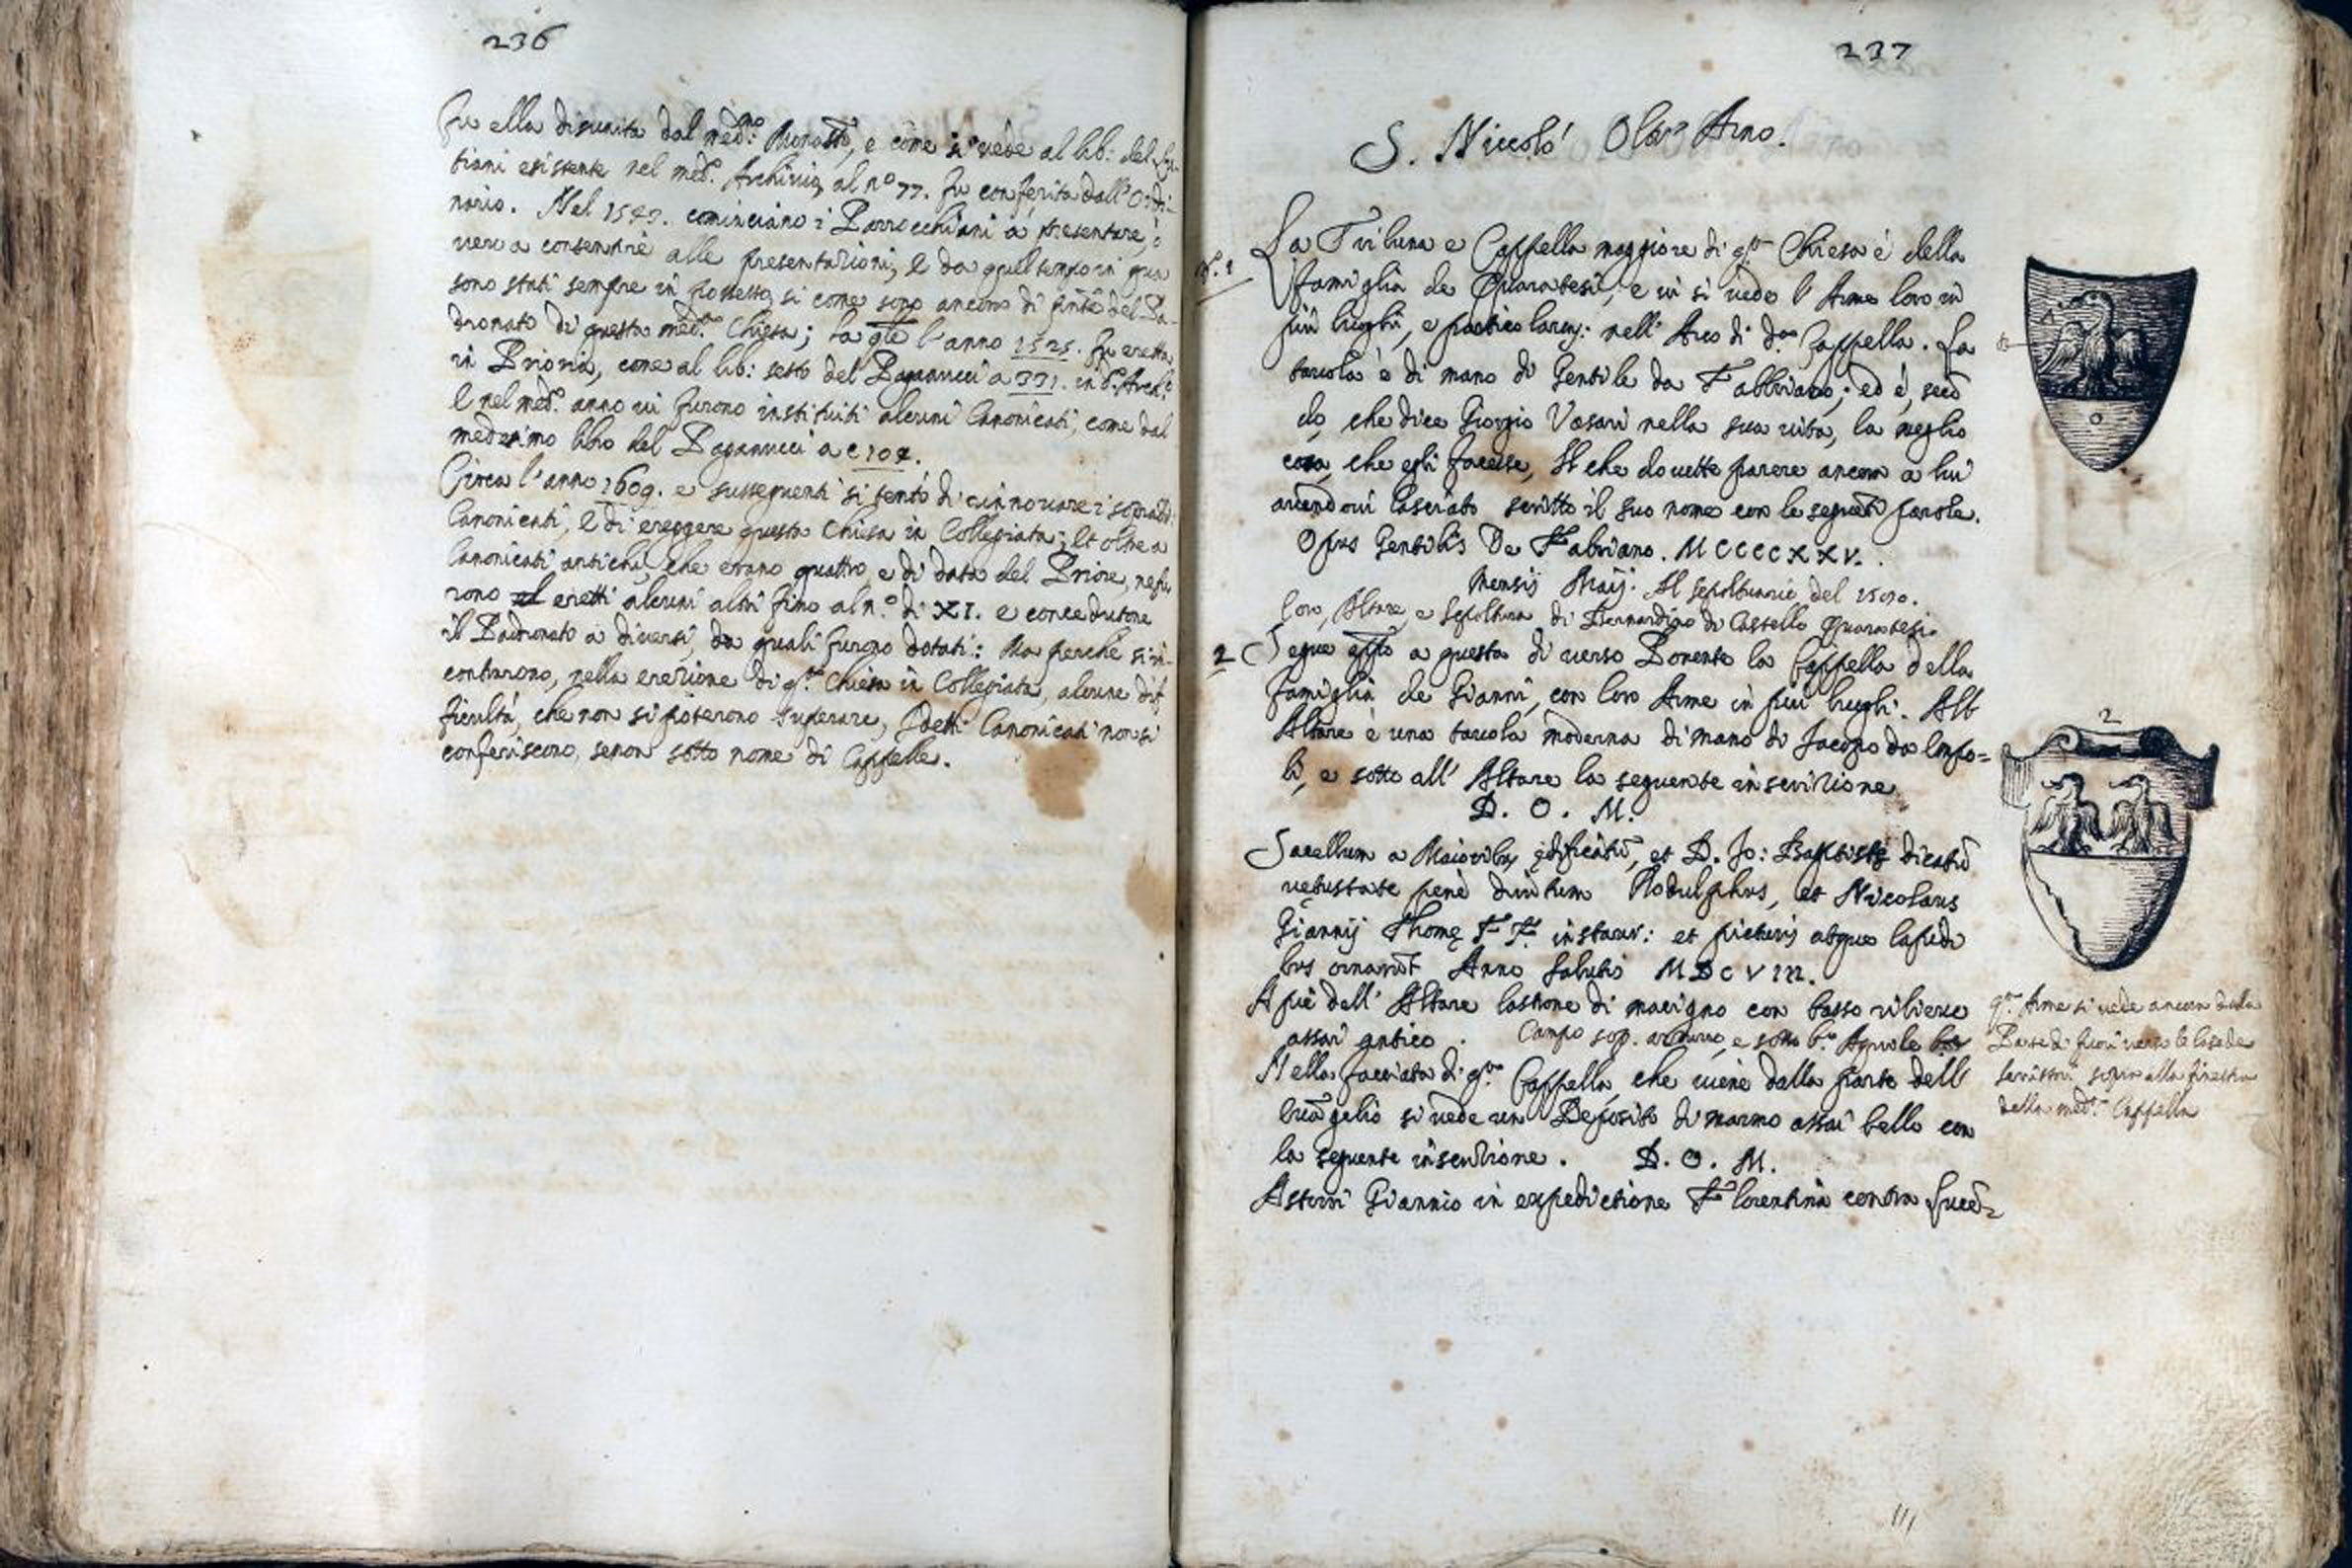 236
Fu ella disunita dal med.mo Monast.o, e come si vede al lib: del
tiani esistente nel med.o Archivio, al n.o 77. fu conferita dall'Ordi-
nario. Nel cominciano i Parrocchiani a presentare, ò
vero a consentire alle presentazioni, e da quel tempo in qua
sono stati sempre in possesso, si come sono ancora di pnte del Pa-
dronato di questa med.ma Chiesa; la qle l'anno 1525. fu eretta
in Prioria, come al lib: sesto del Paganucci a 331. in d.o Arch.o
E nel med.o anno vi furono instituiti alcuni Canonicati, come dal
medesimo libro del Paganucci a c 107.
Circa l'anno 1609. e susseguenti si tentò di rinnovare i sopradd.
Canonicati, e di ereggere questa Chiesa in Collegiata; et oltre a
Canonicati antichi, che erano quattro, e di data del Priore, ne fu
rono eretti alcuni altri fino al n.o di XI. e concedutone
il Padronato a diversi, da quali furono dotati: Ma perche si in-
contrarono, nella erezione di q.ta Chiesa in Collegiata, alcune dif
ficultà, che non si poterono superare, i detti Canonicati non si
conferiscono, se non sotto nome di Cappelle.
237
S. Niccolò Oltr' Arno.
N.o 1
La Tribuna e Cappella maggiore di q.ta Chiesa è della
famiglia de Quaratesi, e vi si vede l'Arme loro in
più luoghi, e particolarm: nell'Arco di d.a Cappella. La
tavola è di mano di Gentile da Fabbriano; ed è, secõ
do, che dice Giorgio Vasari nella sua vita, la meglio
cosa, che egli facesse, Il che dovette parere ancora a lui
avendovi lasciato scritto il suo nome con le seguẽti parole.
Opvs Gentilis De Fabriano. MCCCCXXV.
Mensis Maij. Il sepoltuario del
loro, Altare, e sepoltura di Bernardino di Castello Quaratesi.
2 Segue a questa di verso Ponente la Cappella della
famiglia de Gianni, con loro Arme in più luoghi. All
Altare è una tavola moderna di mano di Jacopo da Empo=
li, e sotto all'Altare la seguente inscrizione
D. O. M.
Sacellum a Maioribus ędificatũ, et D. Jo: Baptistę dicatũ
vetustate penè dirutum Rodulphus, et Nicolaus
Giannij Thomę FF. instaur: et picturis atque lapidi
bus ornarũt Anno Salutis MDCVIII.
A piè dell'Altare lastrone di macigno con basso rilievo
assai antico. Campo sop. azzurro, e sotto b.o Aquile
Nella facciata di q.ta Cappella, che viene dalla parte dell'
Evãgelio si vede un Deposito di marmo assai bello con
la seguente inscrizione. D. O. M.
Astorri Giannio in expeditione Florentina contra Lucẽ=
2
q.ta Arme si vede ancora dalla
Parte di fuori verso le Case de
Serristori sopra alla finestra
della med.ma Cappella